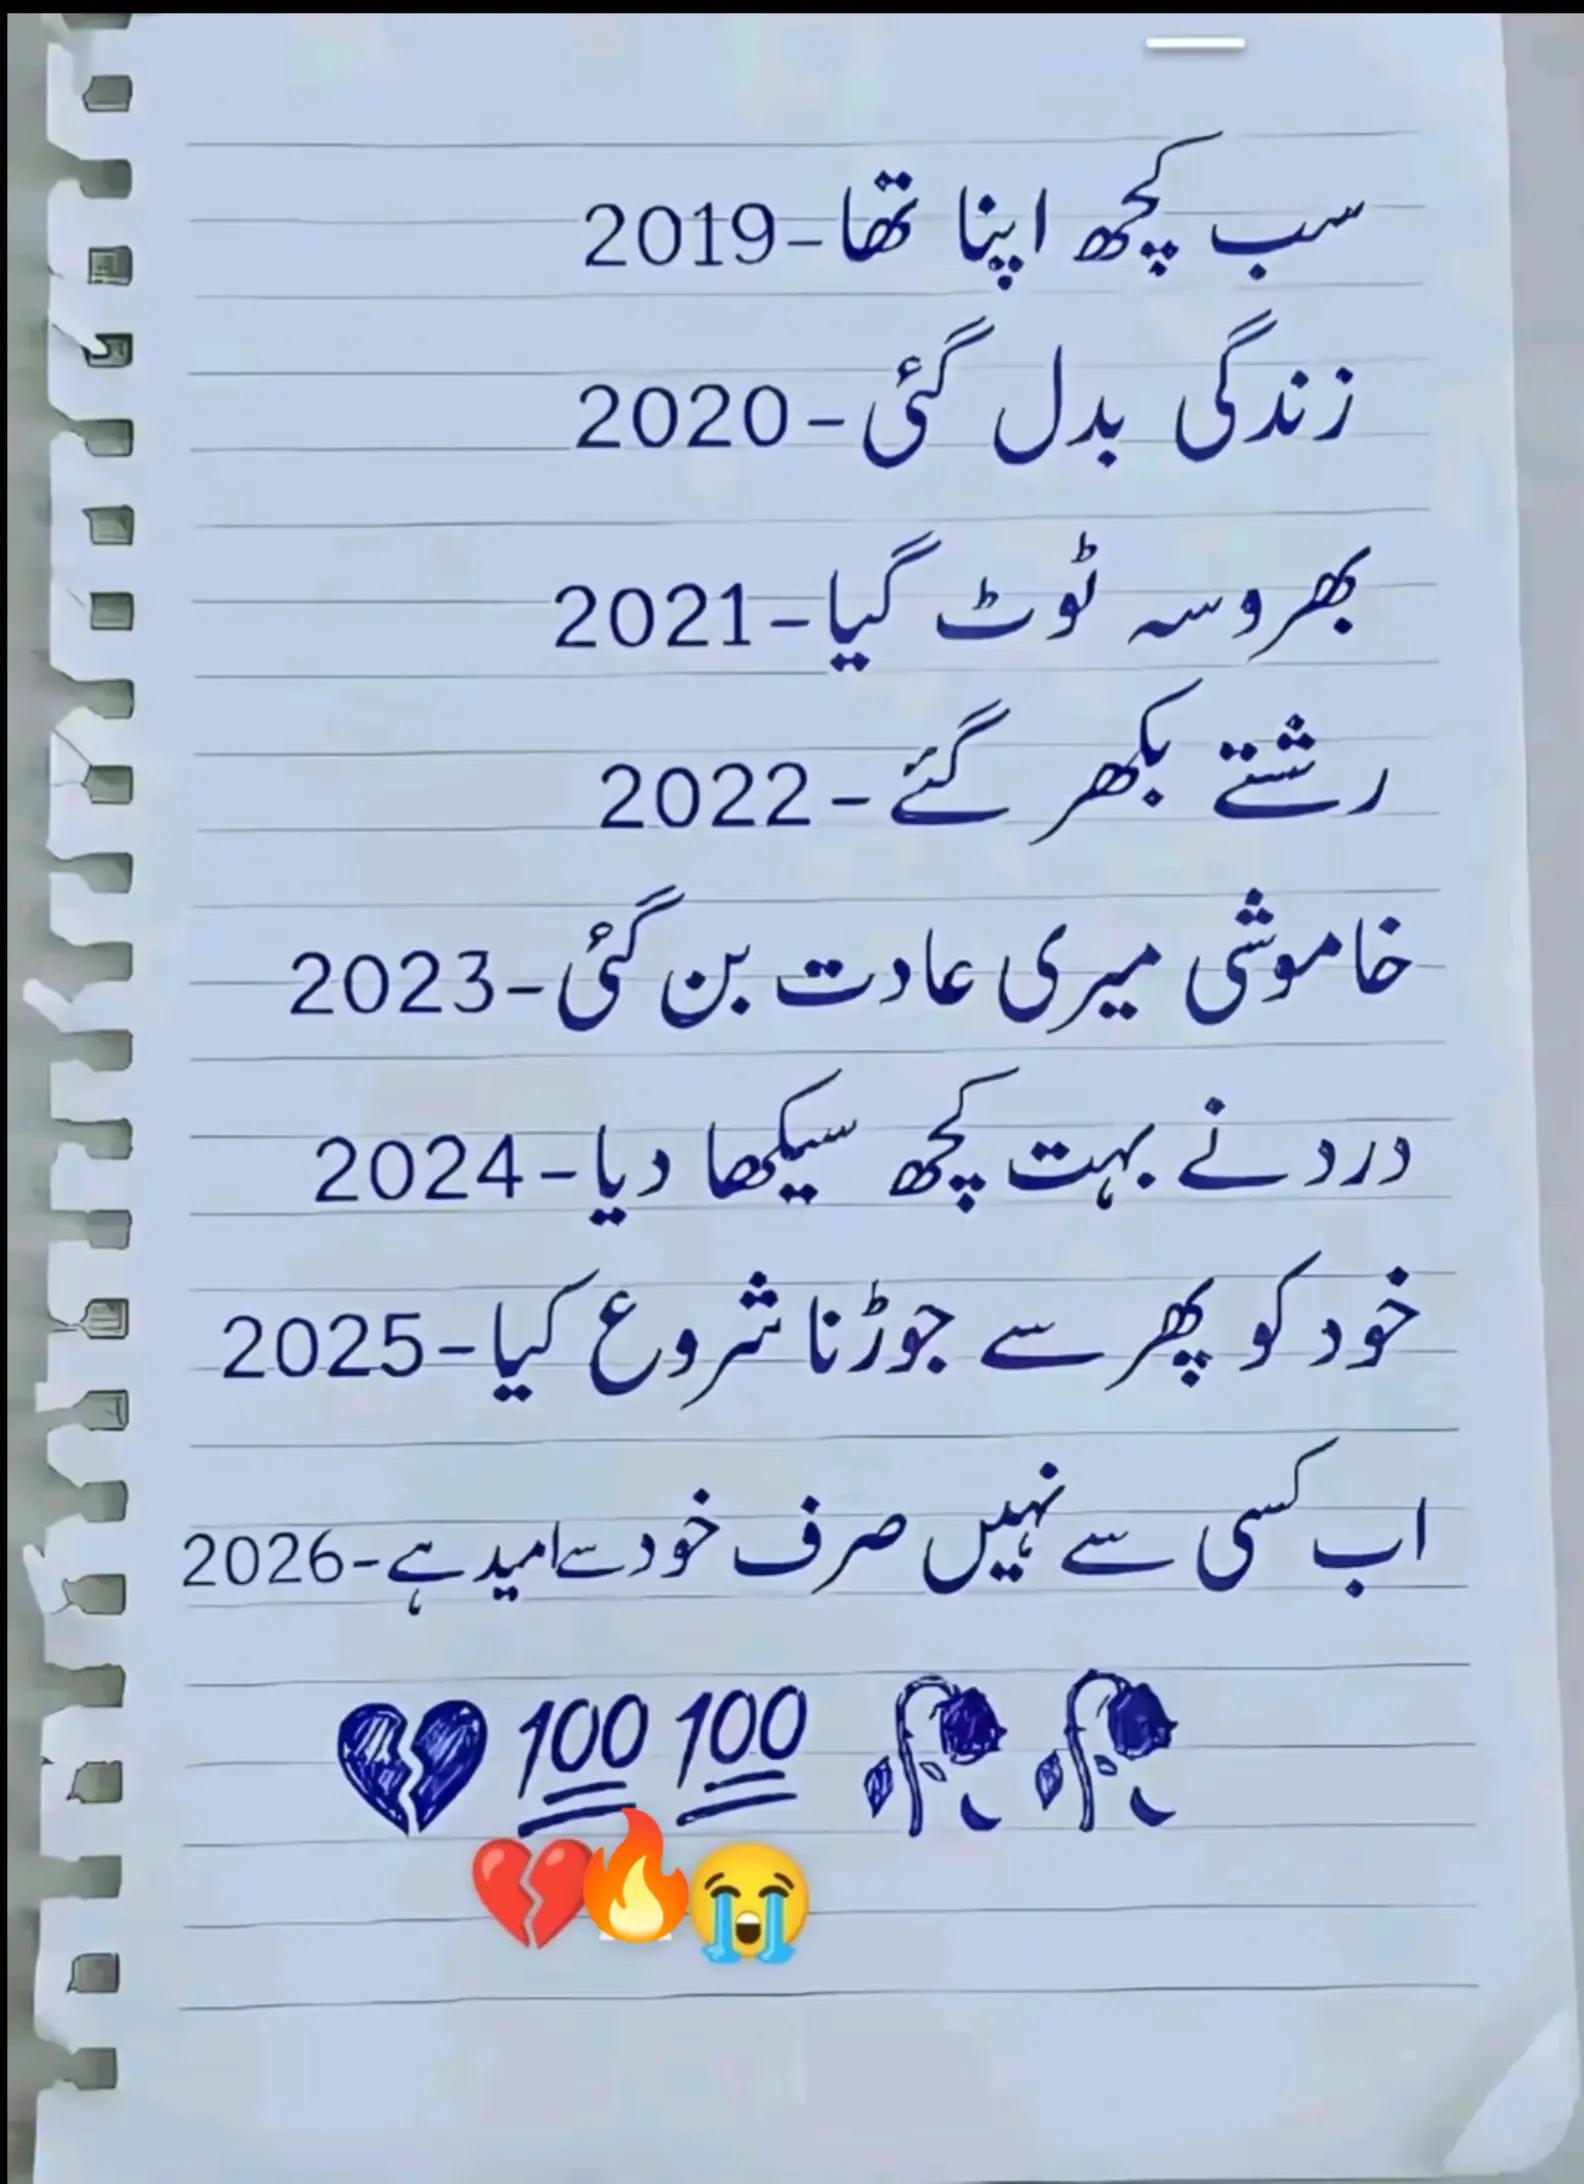 سب کچھ اپنا تھا-2019
زندگی بدل گئی-2020
بھروسہ ٹوٹ گیا-2021
رشتے بکھر گئے-2022
خاموشی میری عادت بن گئی-2023
درد نے بہت کچھ سیکھا دیا-2024
خود کو پھر سے جوڑنا شروع کیا-2025
اب کسی سے نہیں صرف خود سے امید ہے-2026
💔 100 100 🥀🥀
💔🔥😭